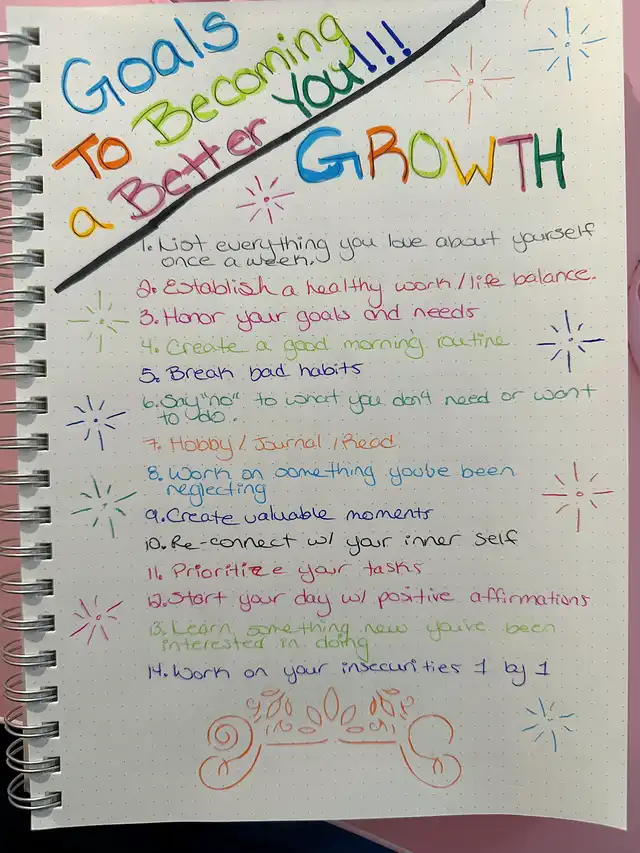 Goals
To Becoming
a Better You!!!
GROWTH
1. List everything you love about yourself
once a week.
2. Establish a healthy work/life balance.
3. Honor your goals and needs
4. Create a good morning routine
5. Break bad habits
6. Say "no" to what you don't need or want
to do.
7. Hobby / Journal / Read
8. Work on something you've been
neglecting
9. Create valuable moments
10. Re-connect w/ your inner self
11. Prioritize your tasks
12. Start your day w/ positive affirmations
13. Learn something new you've been
interested in doing.
14. Work on your insecurities 1 by 1